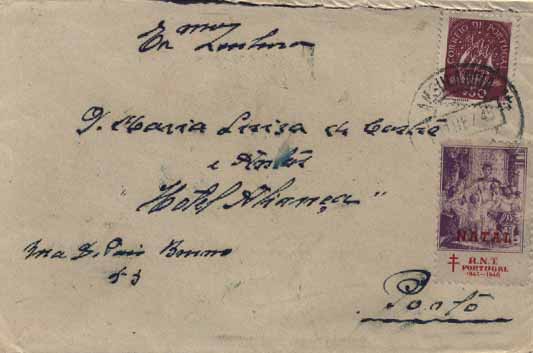 Exma
Senhora
D. Maria Luisa de Castro
e Antas
"Hotel Aliança"
Rua D. Paio
Porto
CORREIO DE PORTUGAL
NATAL
A.N.T.
PORTUGAL
1945-1946